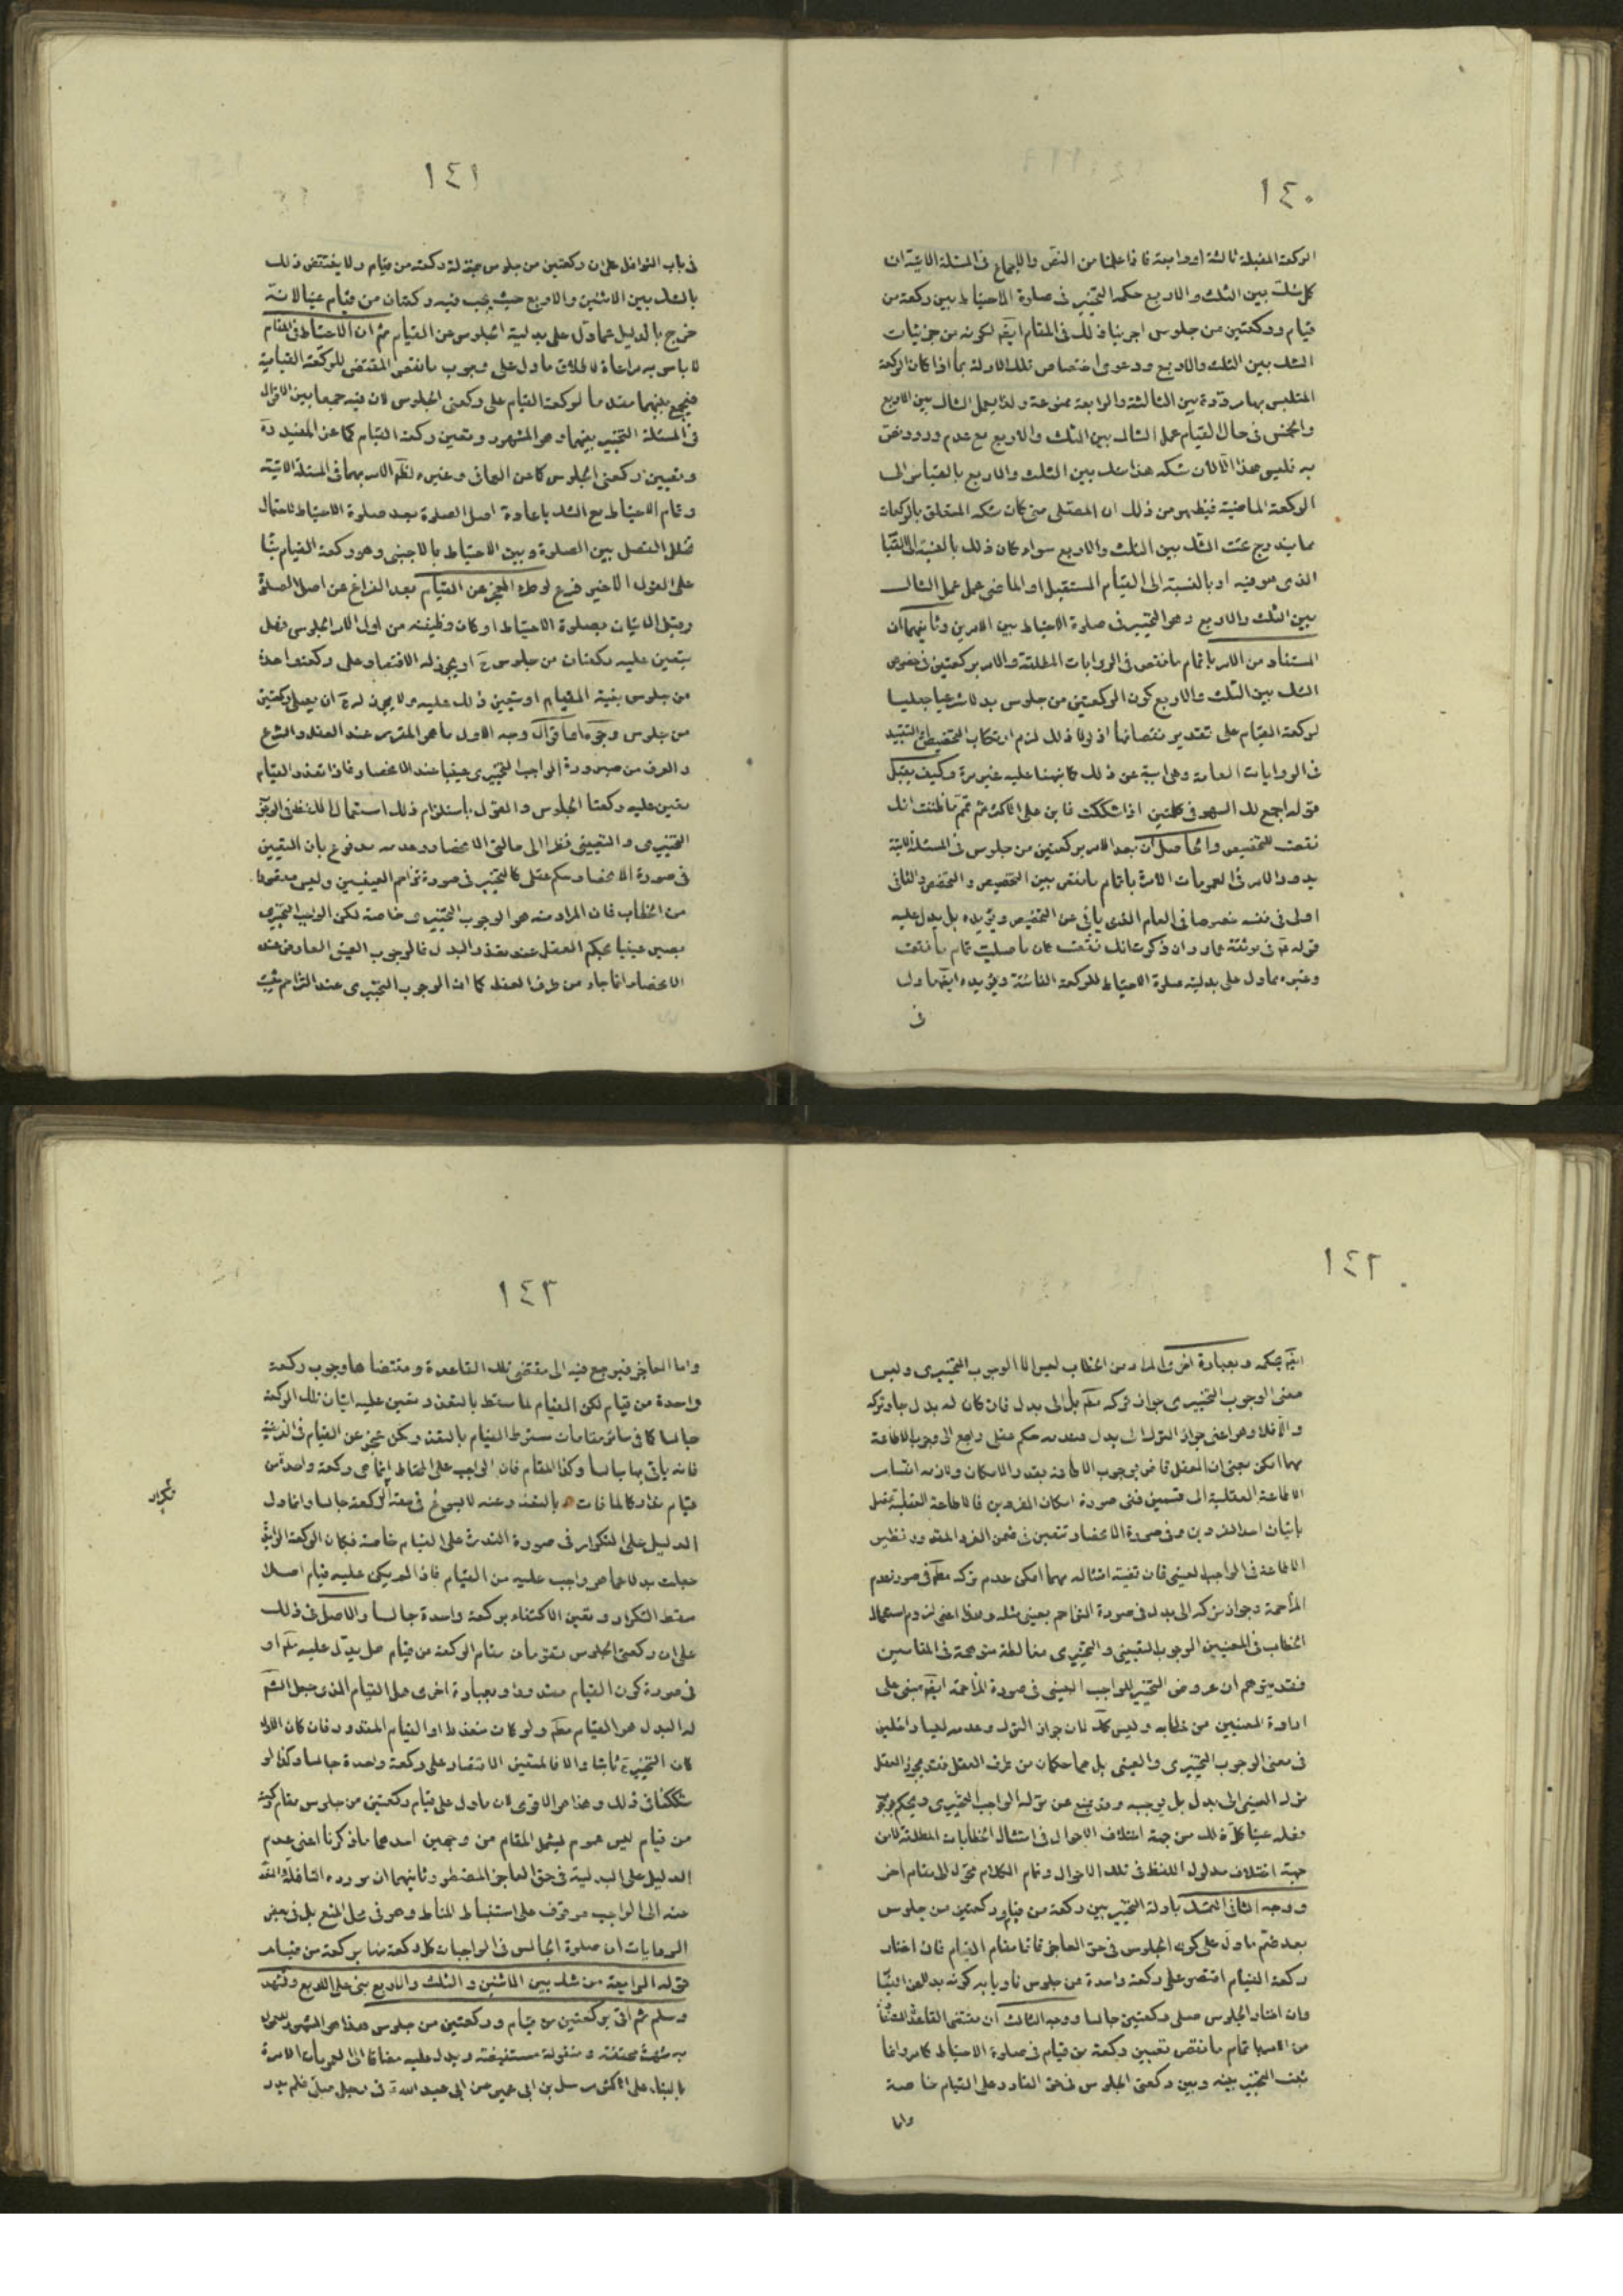 ١٤٠
الركعة المقبلة ثالثة او رابعة فاذا علمنا من النص والاجماع فى المسئلة الاتية ان
كل شك بين الثلث والاربع حكمه التخيير فى صلوة الاحتياط بين ركعة من
قيام وركعتين من جلوس اجرينا ذلك فى المقام ايضا لكونه من جزئيات
الشك بين الثلث والاربع ودعوى اختصاص تلك الادلة بما اذا كان الركعة
المتلبس بها مرددة بين الثالثة والرابعة ممنوعة ولذا يعمل الشاك بين الاربع
والخمس فى حال القيام عمل الشاك بين الثلث والاربع مع عدم ورود نص
به فليس هذا الا لان شكه هذا شك بين الثلث والاربع بالقياس الى
الركعة الماضية فيظهر من ذلك ان المصلى متى كان شكه المتعلق بالركعات
مما يندرج تحت الشك بين الثلث والاربع سواء كان ذلك بالنسبة الى القيام
الذى هو فيه او بالنسبة الى القيام المستقبل او الماضى عمل عمل الشاك
بين الثلث والاربع وهو التخيير فى صلوة الاحتياط بين الامرين وثانيهما ان
المستفاد من الامر باتمام ما نقص فى الروايات المطلقة والامر بركعتين فى خصوص
الشك بين الثلث والاربع كون الركعتين من جلوس بدلا شرعيا جعليا
لركعة القيام على تقدير نقصانها اذ لولا ذلك لزم ارتكاب التخصيص او التقييد
فى الروايات العامة وهى ابية عن ذلك كما نبهنا عليه غير مرة وكيف يقبل
قوله اجمع لك السهو فى كلمتين اذا شككت فابن على الاكثر ثم تمم ما ظننت انك
نقصت للتخصيص والحاصل ان بعد الامر بركعتين من جلوس فى المسئلة الاتية
يدور الامر فى العمومات الامرة باتمام ما نقص بين التخصيص والتخصص والثانى
اولى فى نفسه خصوصا فى العام الذى يأبى عن التخصيص ويؤيده بل يدل عليه
قوله ع فى موثقة عمار وان ذكرت انك نقصت كان ما صليت تمام ما نقصت
وغيره مما دل على بدلية صلوة الاحتياط للركعة الفائتة ويؤيده ايضا ما دل
فى
١٤١
فى باب النوافل على ان ركعتين من جلوس بمنزلة ركعة من قيام ولا ينتقض ذلك
بالشك بين الاثنين والاربع حيث يجب فيه ركعتان من قيام عينا لانه
خرج بالدليل عما دل على بدلية الجلوس عن القيام ثم ان الاحتياط فى المقام
لا باس به مراعاة لاطلاق ما دل على وجوب ما نقص المقتضى للركعة القيامية
فيجمع بينهما مقدما لركعة القيام على ركعتى الجلوس لان فيه جمعا بين الاقوال
فى المسئلة التخيير بينهما وهو المشهور وتعين ركعة القيام كما عن المفيد
وتعيين ركعتى الجلوس كما عن العمانى وغيره لظهور الامر بهما فى المسئلة الاتية
وتمام الاحتياط مع الشك باعادة اصل الصلوة بعد صلوة الاحتياط لاحتمال
تخلل الفصل بين الصلوة وبين الاحتياط بالاجنبى وهو ركعة القيام بناء
على القول الاخير فرع لو طرء العجز عن القيام بعد الفراغ عن اصل الصلوة
وقبل الاتيان بصلوة الاحتياط او كان وظيفته من اول الامر الجلوس فهل
يتعين عليه ركعتان من جلوس او يجوز له الاقتصار على ركعة واحدة
من جلوس بنية القيام او يتعين ذلك عليه ولا يجوز له ان يصلى ركعتين
من جلوس وجوه بل اقوال وجه الاول ما هو المقرر عند العقل والشرع
والعرف من صيرورة الواجب التخييرى عينيا عند الانحصار فاذا تعذر القيام
تعين عليه ركعتا الجلوس والقول باستلزام ذلك استعمال اللفظ فى الوجوب
التخييرى والتعيينى نظرا الى حالتى الانحصار وعدمه مدفوع بان التعيين
فى صورة الانحصار حكم عقلى كالتخيير فى صورة تزاحم العينيين وليس مقصودا
من الخطاب فان المراد منه هو الوجوب التخييرى خاصة لكن الواجب التخييرى
يصير عينيا بحكم العقل عند تعذر البدل فالوجوب العينى العارض عند
الانحصار انما جاء من طرف العقل كما ان الوجوب التخييرى عند التزاحم يثبت
١٤٢
ايضا بحكمه وبعبارة اخرى المراد من الخطاب ليس الا الوجوب التخييرى وليس
معنى الوجوب التخييرى جواز تركه مطلقا بل الى بدل فان كان له بدل جاز تركه
والا فلا وهو اعنى جواز الترك الى بدل وعدمه حكم عقلى راجع الى وجوب الاطاعة
مهما امكن بمعنى ان العقل قاض بوجوب الاطاعة بقدر الامكان ولازمه انقسام
الاطاعة العقلية الى قسمين ففى صورة امكان الفردين فالاطاعة العقلية تحصل
باتيان احد الفردين وفى صورة الانحصار تتعين فى ضمن الفرد المقدور ونظير
الاطاعة فى الواجب العينى فان قضية امتثاله مهما امكن عدم تركه مطلقا فى صورة عدم
المزاحمة وجواز تركه الى بدل فى صورة التزاحم بعينى مثله ولذا اعنى لزوم استعمال
الخطاب فى المعنيين الوجوب التعيينى والتخييرى مغالطة متوهمة فى المقامين
فقد يتوهم ان عروض التخيير للواجب العينى فى صورة المزاحمة ايضا مبنى على
ارادة المعنيين من خطابه وليس كك لان جواز الترك وعدمه ليسا داخلين
فى معنى الوجوب التخييرى والعينى بل هما حكمان من طرف العقل فقد يجوز العقل
ترك العينى الى بدل بل يوجبه وقد يمنع عن ترك الواجب التخييرى ويحكم بوجوب
فعله عينا كل ذلك من جهة اختلاف الاحوال فى امتثال الخطابات المطلقة لا من
جهة اختلاف مدلول اللفظ فى تلك الاحوال وتمام الكلام موكول الى مقام اخر
ووجه الثانى التمسك بادلة التخيير بين ركعة من قيام وركعتين من جلوس
بعد ضم ما دل على كون الجلوس فى حق العاجز قائما مقام القيام فان اختار
ركعة القيام اقتصر على ركعة واحدة من جلوس ناويا به كونه بدلا عن القيام
وان اختار الجلوس صلى ركعتين جالسا ووجه الثالث ان مقتضى القاعدة المستفادة
من الامر باتمام ما نقص تعيين ركعة من قيام فى صلوة الاحتياط كما مر وانما
ثبت التخيير بينه وبين ركعتى الجلوس فى حق القادر على القيام خاصة
واما
١٤٣
واما العاجز فيرجع فيه الى مقتضى تلك القاعدة ومقتضاها وجوب ركعة
واحدة من قيام لكن القيام لما سقط بالتعذر تعين عليه اتيان تلك الركعة
جالسا كما فى سائر مقامات سقوط القيام بالتعذر وكمن عجز عن القيام فى الفريضة
فانه يأتى بها جالسا وكذا المقام فان الواجب على المحتاط انما هى ركعة واحدة من
قيام تداركا لما فات بالتعذر وعنه لا يسوغ فى هذه الركعة جالسا وانما دل
الدليل على التكرار فى صورة القدرة على القيام خاصة فكان الركعة الزائدة
جعلت بدلا عما هو واجب عليه من القيام فاذا لم يكن عليه قيام اصلا
سقط التكرار وتعين الاكتفاء بركعة واحدة جالسا والاصل فى ذلك
على ان ركعتى الجلوس تقومان مقام الركعة من قيام هل يدل عليه مطلقا او
فى صورة كون القيام مقدورا وبعبارة اخرى هل القيام الذى جعل الشرع
له البدل هو القيام مطلقا ولو كان متعذرا او القيام المقدور فان كان الاول
كان التخيير ثابتا والا فالمتعين الاقتصار على ركعة واحدة جالسا وكذا لو
شككنا فى ذلك وهذا هو الاقوى لان ما دل على قيام ركعتين من جلوس مقام ركعة
من قيام ليس عموم ليشمل المقام من وجهين احدهما ما ذكرنا اعنى عدم
الدليل على البدلية فى حق العاجز المضطر وثانيهما ان مورده النافلة والتعدى
عنه الى الواجب موقوف على استنباط المناط وهو فى محل المنع بل فى بعض
الروايات ان صلوة الجالس فى الواجبات كل ركعة منها بركعة من قيام
قوله الرابعة من شك بين الاثنين والثلث والاربع بنى على الاربع وتشهد
وسلم ثم اتى بركعتين من قيام وركعتين من جلوس هذا هو المشهور
به شهرة محققة ومنقولة مستفيضة ويدل عليه مضافا الى العمومات الامرة
بالبناء على الاكثر مرسل بن ابى عمير عن ابى عبد الله ع فى رجل صلى فلم يدر
تكرير